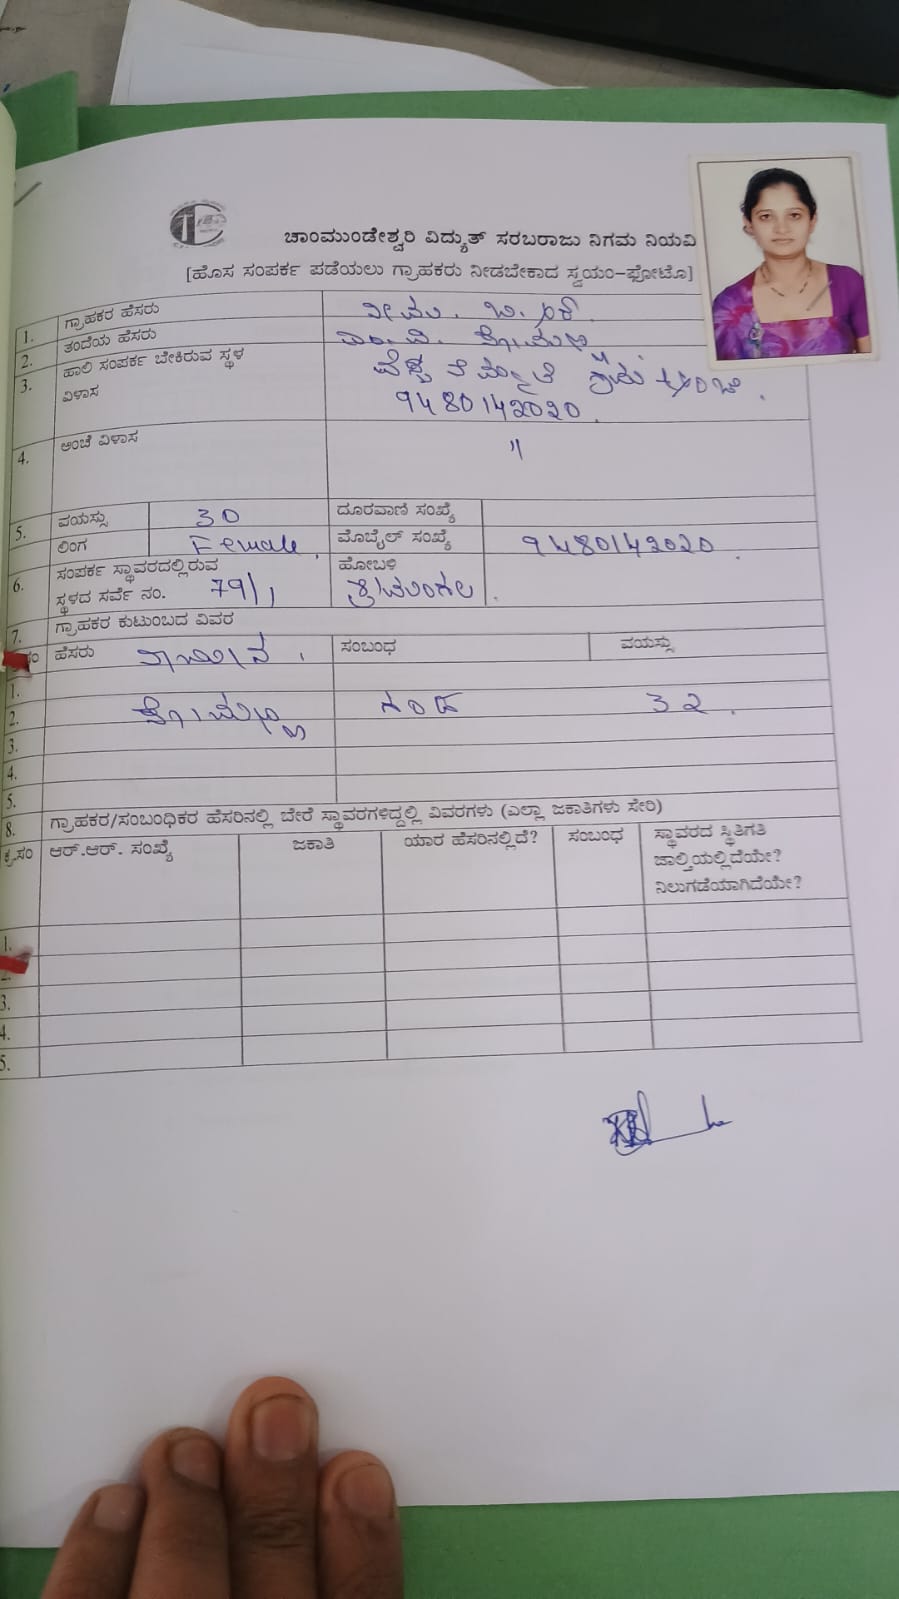 ಚಾಂಮುಂಡೇಶ್ವರಿ ವಿದ್ಯುತ್ ಸರಬರಾಜು ನಿಗಮ ನಿಯಮಿ
[ಹೊಸ ಸಂಪರ್ಕ ಪಡೆಯಲು ಗ್ರಾಹಕರು ನೀಡಬೇಕಾದ ಸ್ವಯಂ-ಫೋಟೊ]
1. ಗ್ರಾಹಕರ ಹೆಸರು
2. ತಂದೆಯ ಹೆಸರು
3. ಹಾಲಿ ಸಂಪರ್ಕ ಬೇಕಿರುವ ಸ್ಥಳ
ವಿಳಾಸ 9480142020
4. ಅಂಚೆ ವಿಳಾಸ "
5. ವಯಸ್ಸು 30 ದೂರವಾಣಿ ಸಂಖ್ಯೆ
ಲಿಂಗ Female ಮೊಬೈಲ್ ಸಂಖ್ಯೆ 9480142020
6. ಸಂಪರ್ಕ ಸ್ಥಾವರದಲ್ಲಿರುವ ಹೋಬಳಿ
ಸ್ಥಳದ ಸರ್ವೆ ನಂ. 79/1 ಶ್ರೀಮಂಗಲ
7. ಗ್ರಾಹಕರ ಕುಟುಂಬದ ವಿವರ
ಹೆಸರು ಸಂಬಂಧ ವಯಸ್ಸು
1.
2. ಗಂಡ 32
3.
4.
5.
8. ಗ್ರಾಹಕರ/ಸಂಬಂಧಿಕರ ಹೆಸರಿನಲ್ಲಿ ಬೇರೆ ಸ್ಥಾವರಗಳಿದ್ದಲ್ಲಿ ವಿವರಗಳು (ಎಲ್ಲಾ ಜಕಾತಿಗಳು ಸೇರಿ)
ಕ್ರ.ಸಂ ಆರ್.ಆರ್. ಸಂಖ್ಯೆ ಜಕಾತಿ ಯಾರ ಹೆಸರಿನಲ್ಲಿದೆ? ಸಂಬಂಧ ಸ್ಥಾವರದ ಸ್ಥಿತಿಗತಿ
ಚಾಲ್ತಿಯಲ್ಲಿದೆಯೇ?
ನಿಲುಗಡೆಯಾಗಿದೆಯೇ?
1.
2.
3.
4.
5.